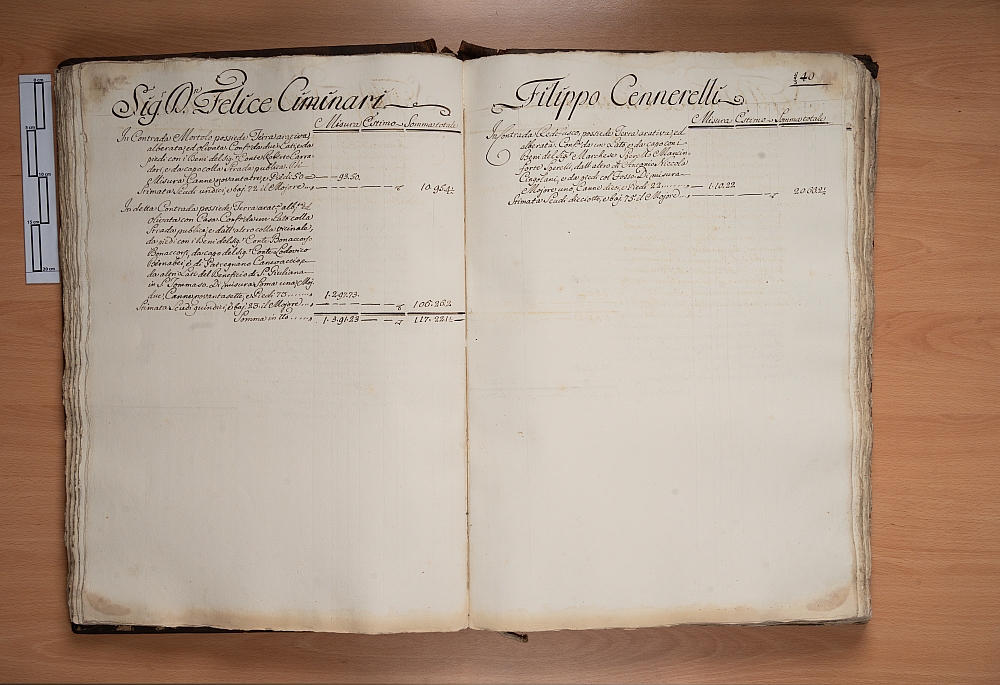 Sig.r D. Felice Ciminari
Misura Estimo Somma totale
In Contrada Mortolo possiede Terra arativa,
alberata, ed olivata Conf. da due Lati, e da
piedi con i Beni del Sig. Conte Roberto Carra
dori, e da capo colla Strada publica. Di
Misura Canne novanta tre, e Piedi 50 93.50
Stimata Scudi undici, e baj. 72. il Mojore
In detta Contrada possiede Terra arat. alb. ed
olivata con Casa Conf. da un Lato colla
Strada publica, e dall'altro colla vicinale,
da piedi con i Beni del Sig. Conte Bonaccorso
Bonaccorsi, da capo del Sig. Conte Lodovico
e di
da altri Lati del Beneficio di S. Giuliana
in S. Tommaso. Di misura Soma una, Moj.
due, Canne novantasette, e Piedi 73 1. 2. 97. 73.
Stimata Scudi quindici, e baj. 23. il Mojore 106. 26 2
Somma in tto 1. 3. 91. 23 117. 22 1
40
Filippo Cennerelli
Misura Estimo Somma totale
In Contrada possiede Terra arativa, ed
alberata, Conf. da un Lato, e da capo con i
Beni del Sig. Marchese Sperello Mancin
forte Sperelli, dall'altro di Niccola
Cingolani, e da piedi col Fosso. Di misura
Mojore uno, Canne dieci, e Piedi 22 1. 10. 22
Stimata Scudi dieciotto, e baj. 75. il Mojore